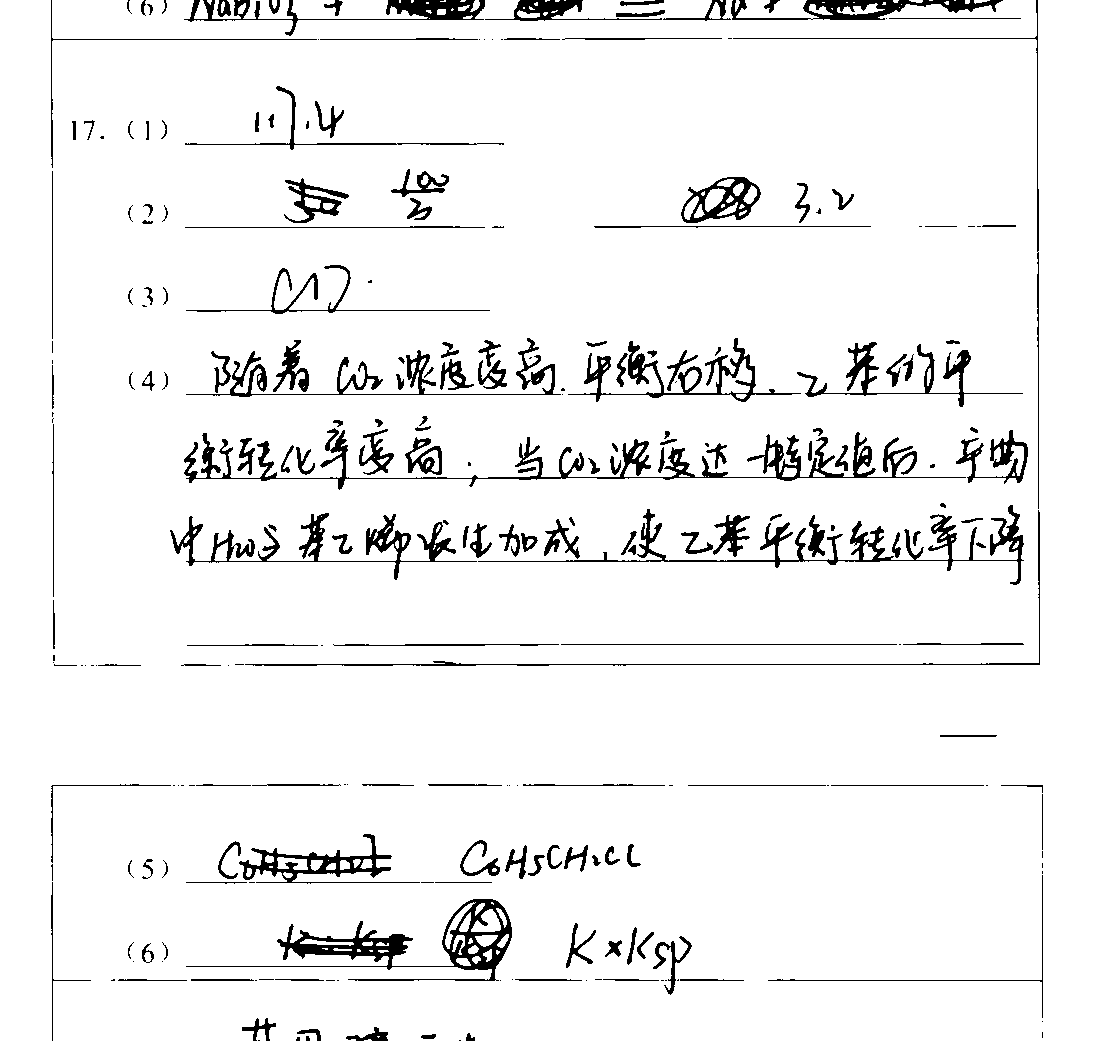 (6) NaBiO3 + = Na+
17. (1) 117.4
(2) 100/3 3.2
(3) (1)
(4) 随着 CO2 浓度变高. 平衡右移. 乙苯的平
衡转化率变高; 当 CO2 浓度达一特定值后. 产物
中H2O与苯乙烯发生加成, 使乙苯平衡转化率下降
(5) C6H5CH2Cl
(6) K×Ksp